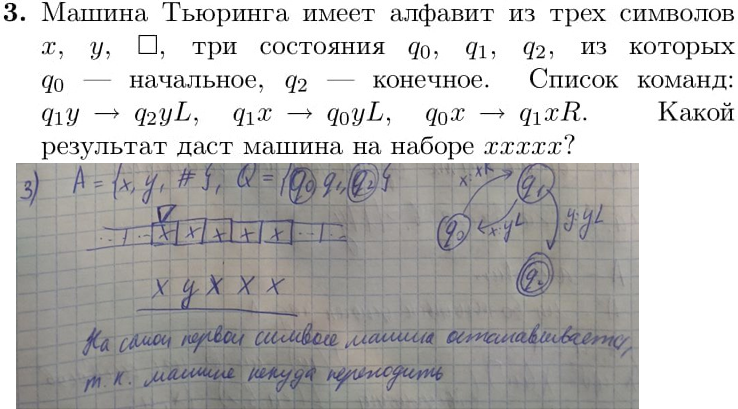 3. Машина Тьюринга имеет алфавит из трех символов
x, y, □, три состояния q₀, q₁, q₂, из которых
q₀ — начальное, q₂ — конечное. Список команд:
q₁y → q₂yL, q₁x → q₀yL, q₀x → q₁xR. Какой
результат даст машина на наборе xxxxx?
3) A = {x, y, #}, Q = {q₀ q₁, q₂}
x:xR q₁
...|x|x|x|x|x|...
q₀ x:yL y:yL
x y x x x q₂
На самом первом символе машина останавливается,
т.к. машине некуда переходить